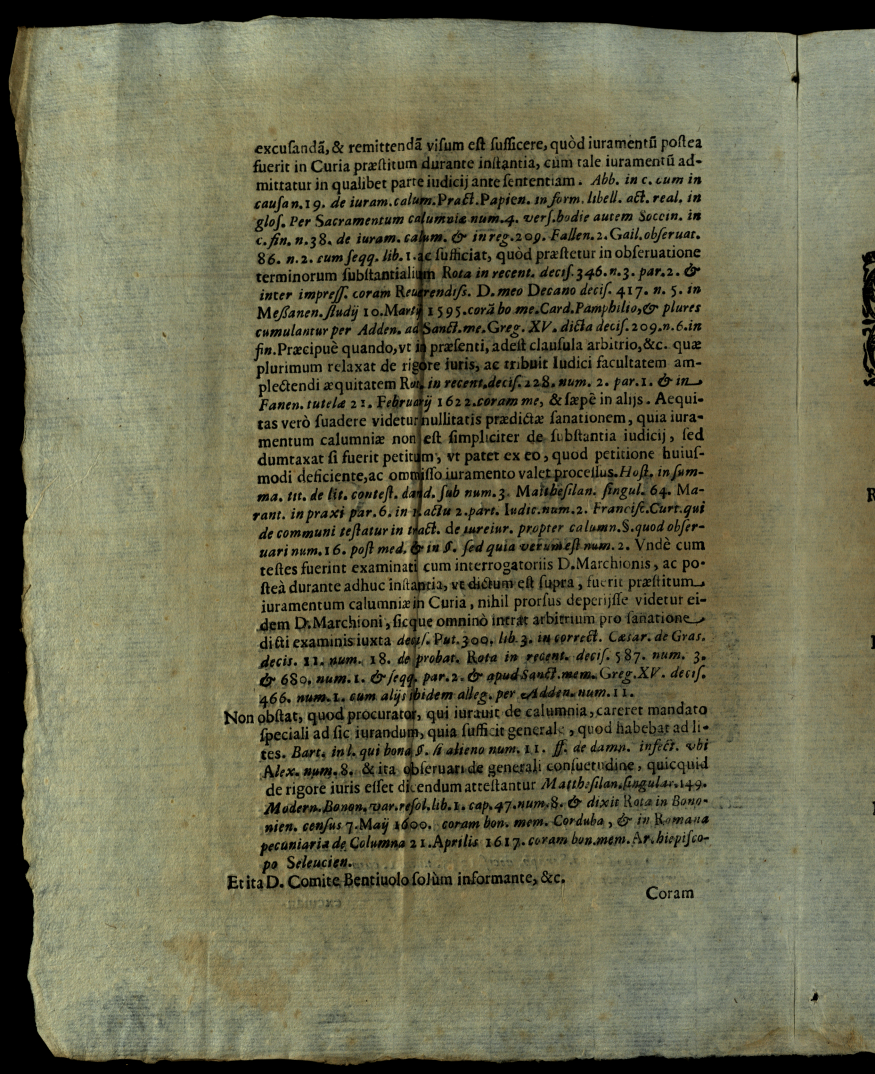 excuſandã, & remittendã viſum eſt ſufficere, quòd iuramentũ poſtea
fuerit in Curia præſtitum durante inſtantia, cùm tale iuramentũ ad-
mittatur in qualibet parte iudicij ante ſententiam. Abb. in c. cum in
cauſa n. 19. de iuram. calum. Pract. Papien. in form. libell. act. real. in
gloſ. Per Sacramentum calumniæ num. 4. verſ. hodie autem Soccin. in
c. fin. n. 38. de iuram. calum. & in reg. 209. Fallen. 2. Gail. obſeruat.
86. n. 2. cum ſeqq. lib. 1. ac ſufficiat, quòd præſtetur in obſeruatione
terminorum ſubſtantialium Rota in recent. deciſ. 346. n. 3. par. 2. &
inter impreſſ. coram Reuerendiſs. D. meo Decano deciſ. 417. n. 5. in
Meſſanen. ſtudij 10. Martij 1595. corã bo. me. Card. Pamphilio, & plures
cumulantur per Adden. ad Sanct. me. Greg. XV. dicta deciſ. 209. n. 6. in
fin. Præcipuè quando, vt in præſenti, adeſt clauſula arbitrio, &c. quæ
plurimum relaxat de rigore iuris, ac tribuit Iudici facultatem am-
plectendi æquitatem Rot. in recent. deciſ. 228. num. 2. par. 1. & in
Fanen. tutelæ 21. Februarij 1622. coram me, & ſæpè in alijs. Aequi-
tas verò ſuadere videtur nullitatis prædictæ ſanationem, quia iura-
mentum calumniæ non eſt ſimpliciter de ſubſtantia iudicij, ſed
dumtaxat ſi fuerit petitum, vt patet ex eo, quod petitione huiuſ-
modi deficiente, ac omiſſo iuramento valet proceſſus. Hoſt. in ſum-
ma. tit. de lit. conteſt. dand. ſub num. 3. Mattheſilan. ſingul. 64. Ma-
rant. in praxi par. 6. in 1. actu 2. part. Iudic. num. 2. Franciſc. Curt. qui
de communi teſtatur in tract. de iureiur. propter calumn. §. quod obſer-
uari num. 16. poſt med. & in §. ſed quia verum eſt num. 2. Vndè cum
teſtes fuerint examinati cum interrogatoriis D. Marchionis, ac po-
ſteà durante adhuc inſtantia, vt dictum eſt ſupra, fuerit præſtitum
iuramentum calumniæ in Curia, nihil prorſus deperijſſe videtur ei-
dem D. Marchioni, ſicque omninò intrat arbitrium pro ſanatione
dicti examinis iuxta deciſ. Put. 300. lib. 3. in correct. Cæſar. de Gras.
decis. 11. num. 18. de probat. Rota in recent. deciſ. 587. num. 3.
& 680. num. 1. & ſeqq. par. 2. & apud Sanct. mem. Greg. XV. deciſ.
466. num. 1. cum alijs ibidem alleg. per Adden. num. 11.
Non obſtat, quod procurator, qui iurauit de calumnia, careret mandato
ſpeciali ad ſic iurandum, quia ſufficit generale, quod habebat ad li-
tes. Bart. in l. qui bona §. ſi alieno num. 11. ff. de damn. infect. vbi
Alex. num. 8. & ita obſeruari de generali conſuetudine, quicquid
de rigore iuris eſſet dicendum atteſtantur Mattheſilan. ſingular. 149.
Modern. Bonon. var. reſol. lib. 1. cap. 47. num. 8. & dixit Rota in Bono-
nien. cenſus 7. Maij 1600. coram bon. mem. Corduba, & in Romana
pecuniaria de Columna 21. Aprilis 1617. coram bon. mem. Archiepiſco-
po Seleucien.
Et ita D. Comite Bentiuolo ſolùm informante, &c.
Coram